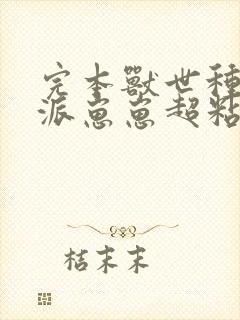 完本獸世種
派崽崽超粘
桔末末